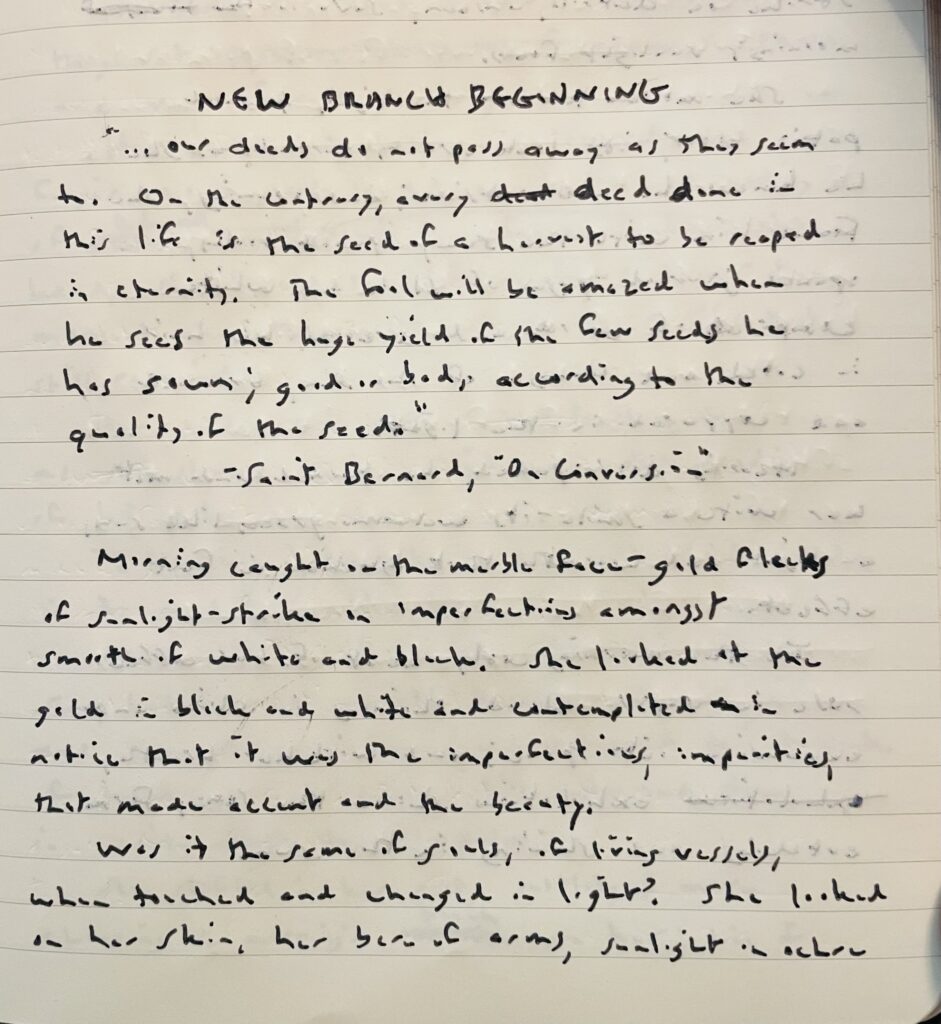 NEW BRANCH BEGINNING
"... our deeds do not pass away as they seem
to. On the contrary, every deed done in
this life is the seed of a harvest to be reaped
in eternity. The fool will be amazed when
he sees the huge yield of the few seeds he
has sown; good or bad, according to the
quality of the seed."
- Saint Bernard, "On Conversion"
Morning caught on the marble face - gold flecks
of sunlight-strike on imperfections amongst
smooth of white and black. She looked at the
gold in black and white and contemplated in
notice that it was the imperfections, impurities,
that made accent and the beauty.
Was it the same of souls, of living vessels,
when touched and changed in light? She looked
on her skin, her bare of arms, sunlight on ochre